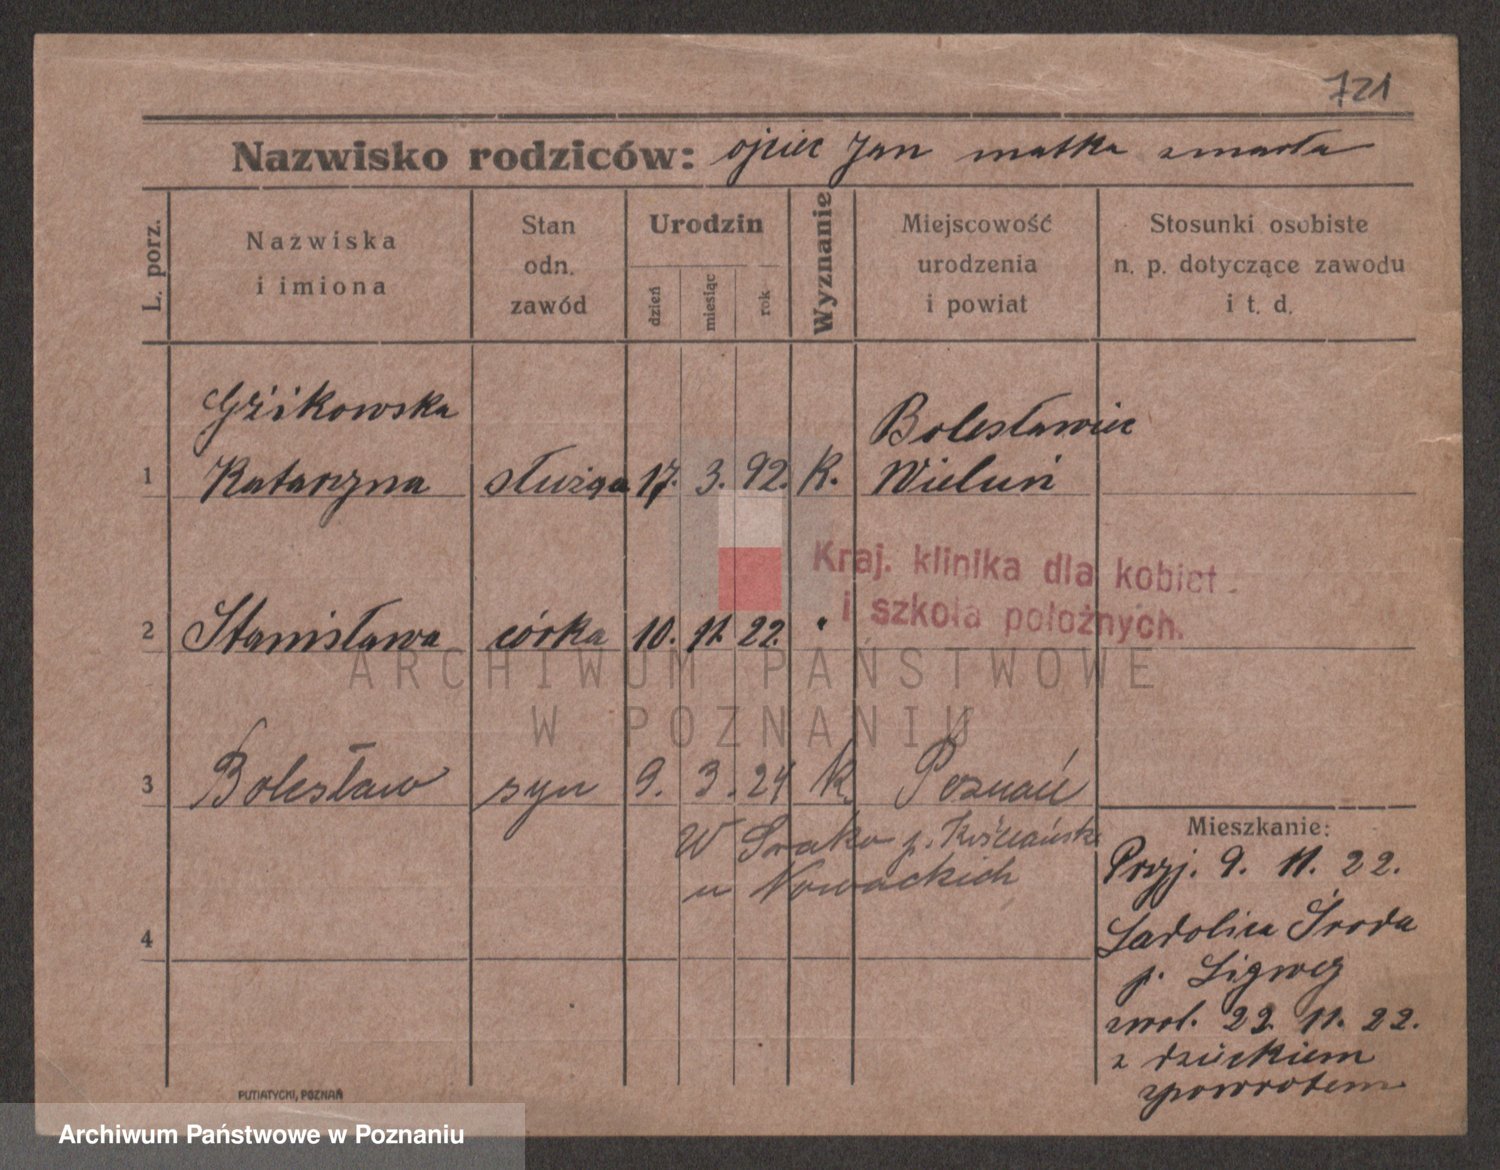 721
Nazwisko rodziców: ojciec Jan matka zmarła
L. porz.
Nazwiska
i imiona
Stan
odn.
zawód
Urodzin
dzień
miesiąc
rok
Wyznanie
Miejscowość
urodzenia
i powiat
Stosunki osobiste
n. p. dotyczące zawodu
i t. d.
Gźikowska
Bolesławiec
1 Katarzyna służąca 17. 3. 92. K. Wieluń
Kraj. klinika dla kobiet
i szkoła położnych.
2 Stanisława córka 10. 11. 22. "
ARCHIWUM PAŃSTWOWE
W POZNANIU
3 Bolesław syn 9. 3. 24 K. Poznań
W p. Kościański
u Nowackich
Mieszkanie:
Przyj. 9. 11. 22.
Środa
p.
4
zwol. 22. 11. 22.
z dzieckiem
zpowrotem
PUTIATYCKI, POZNAŃ
Archiwum Państwowe w Poznaniu